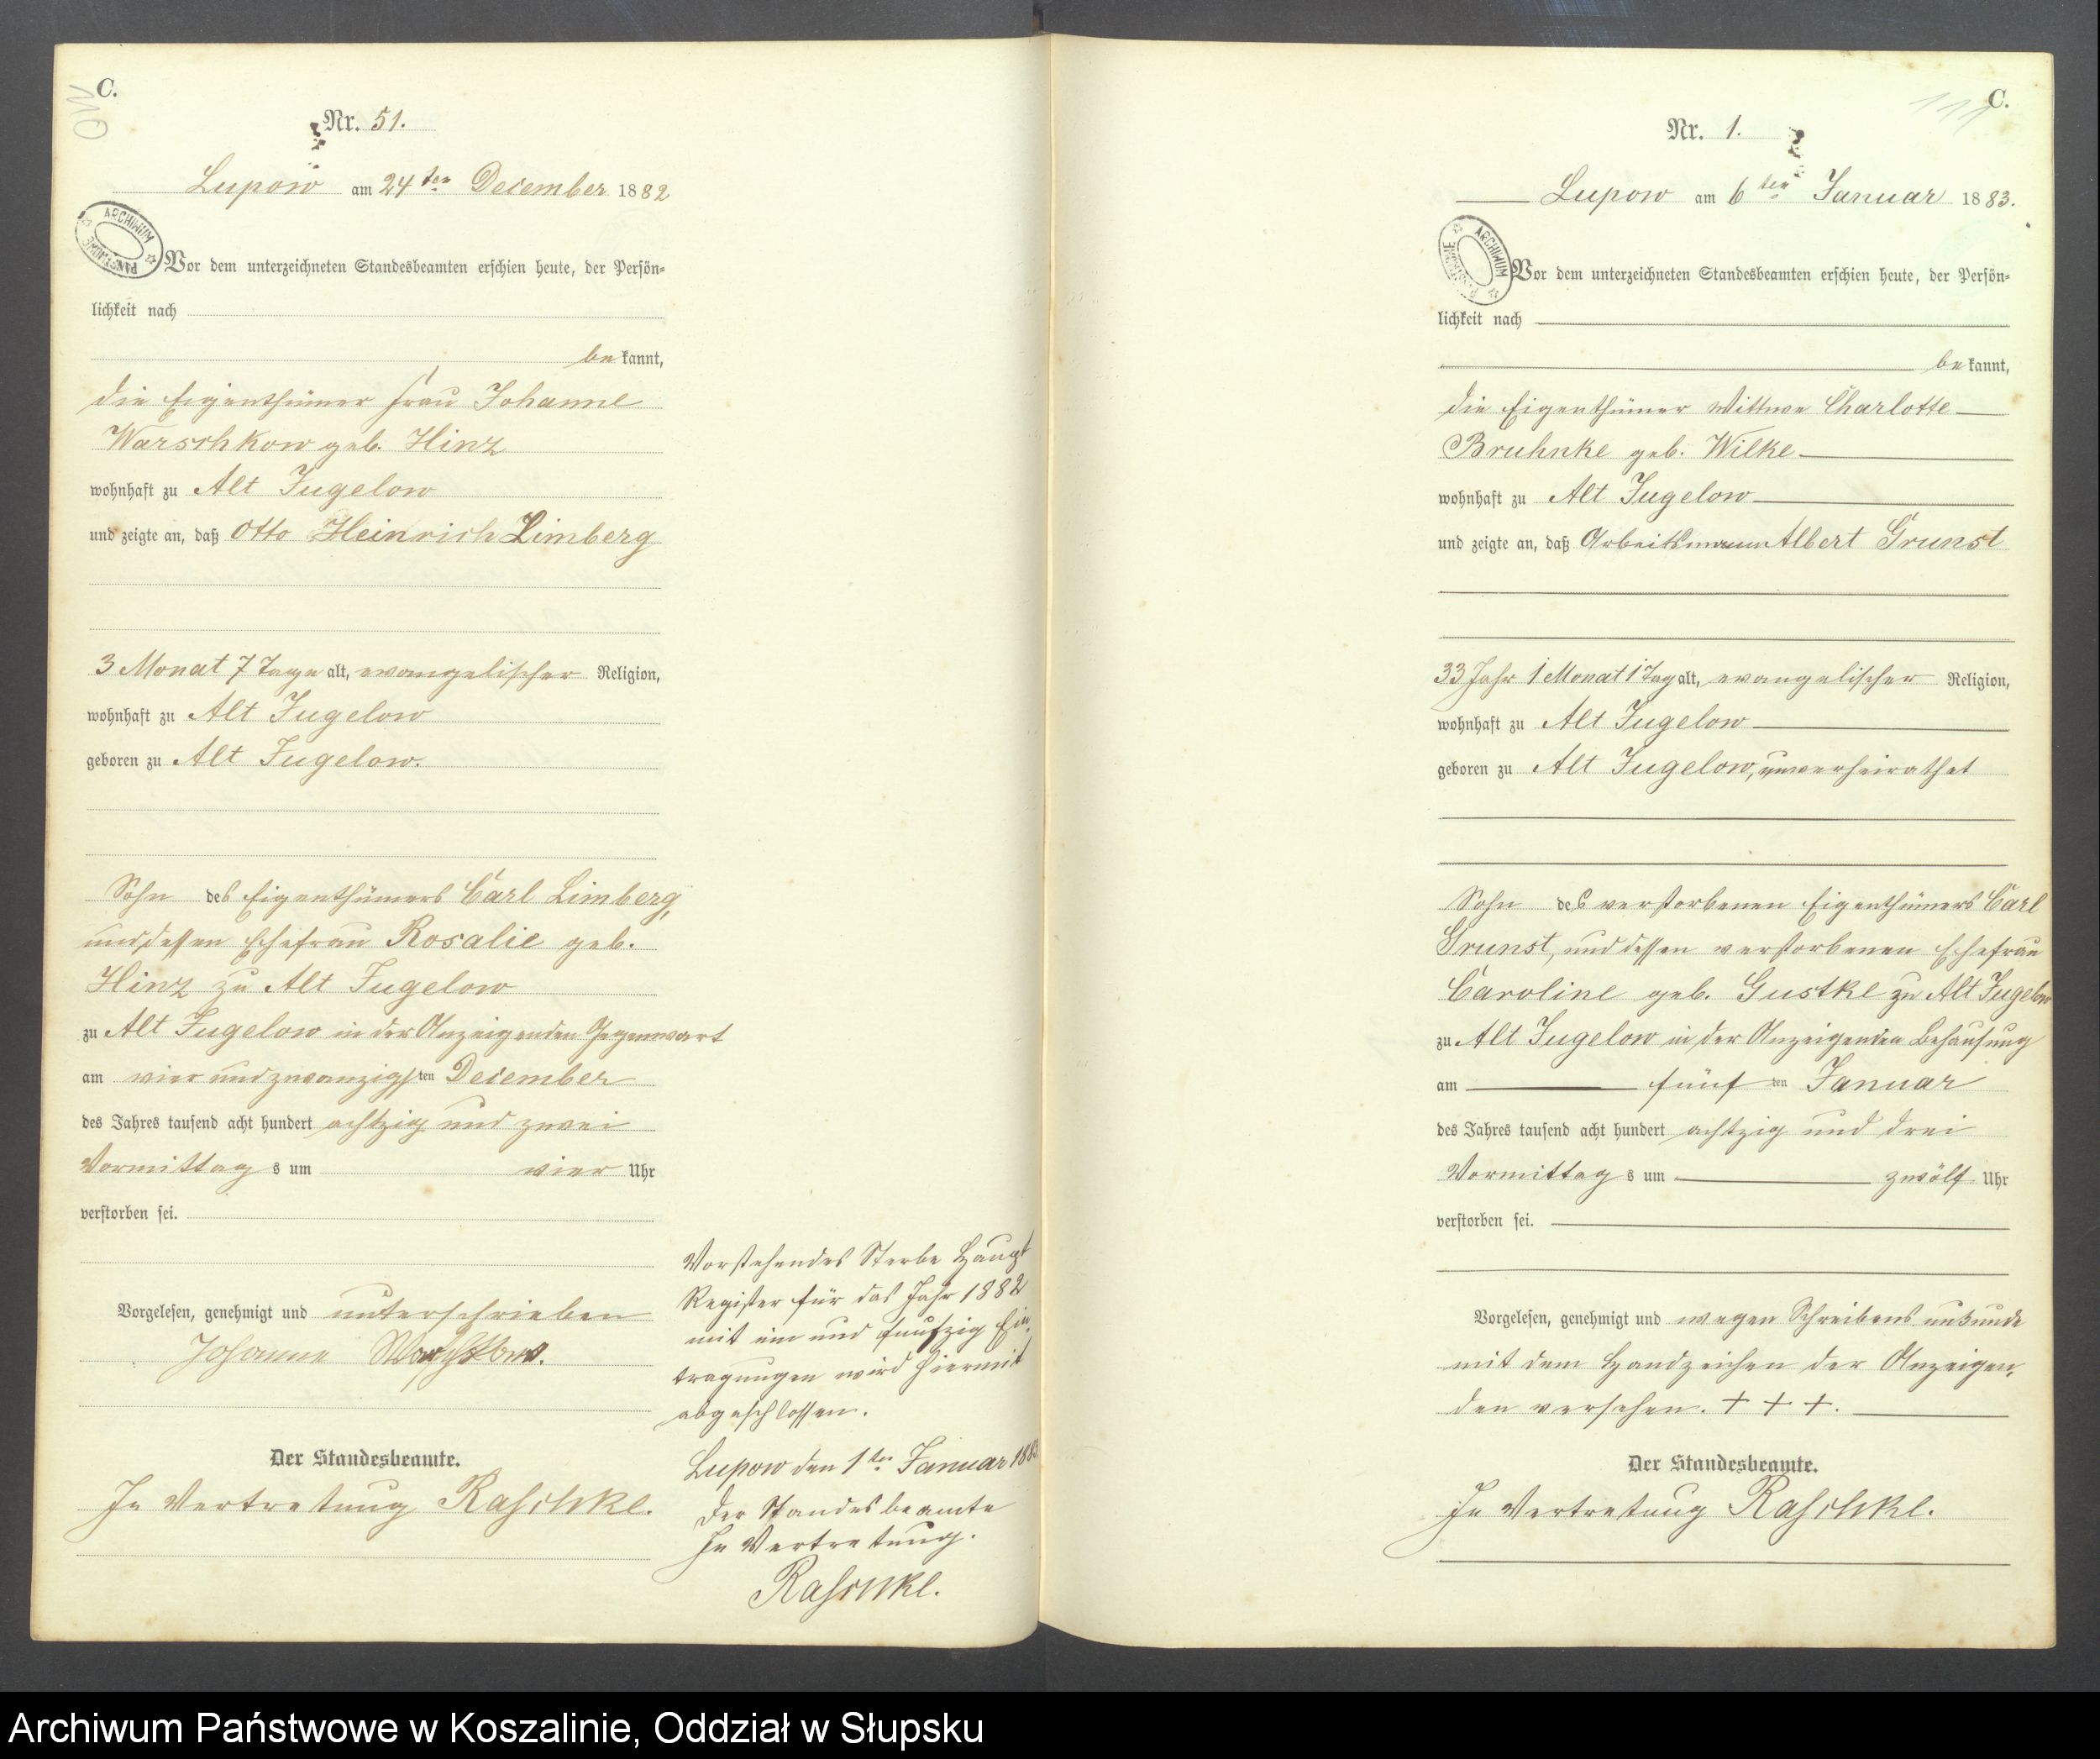 C.
110
Nr. 51.
Lupow am 24ten December 1882
ARCHIWUM PAŃSTWOWE
Vor dem unterzeichneten Standesbeamten erschien heute, der Persön-
lichkeit nach
bekannt,
die Eigenthümer Frau Johanne
Warschkow geb. Hinz
wohnhaft zu Alt Jugelow
und zeigte an, daß Otto Heinrich Limberg
3 Monat 7 Tage alt, evangelischer Religion,
wohnhaft zu Alt Jugelow
geboren zu Alt Jugelow.
Sohn des Eigenthümers Carl Limberg,
und dessen Ehefrau Rosalie geb.
Hinz zu Alt Jugelow
zu Alt Jugelow in der Anzeigenden Gegenwart
am vier und zwanzigsten December
des Jahres tausend acht hundert achtzig und zwei
Vormittags um vier Uhr
verstorben sei.
Vorgelesen, genehmigt und unterschrieben
Johanne Warschkow.
Der Standesbeamte.
In Vertretung Raschke.
Vorstehendes Sterbe Haupt
Register für das Jahr 1882
mit ein und funfzig Ein-
tragungen wird hiermit
abgeschlossen.
Lupow den 1ten Januar 1883
Der Standesbeamte
In Vertretung.
Raschke.
C.
111
Nr. 1.
Lupow am 6ten Januar 1883.
ARCHIWUM PAŃSTWOWE
Vor dem unterzeichneten Standesbeamten erschien heute, der Persön-
lichkeit nach
bekannt,
die Eigenthümer Wittwe Charlotte
Bruhnke geb. Wilke
wohnhaft zu Alt Jugelow
und zeigte an, daß Arbeitsmann Albert Grunst
33 Jahr 1 Monat 1 Tag alt, evangelischer Religion,
wohnhaft zu Alt Jugelow
geboren zu Alt Jugelow, unverheirathet
Sohn des verstorbenen Eigenthümers Carl
Grunst, und dessen verstorbenen Ehefrau
Caroline geb. Gustke zu Alt Jugelow
zu Alt Jugelow in der Anzeigenden Behausung
am fünften Januar
des Jahres tausend acht hundert achtzig und drei
Vormittags um zwölf Uhr
verstorben sei.
Vorgelesen, genehmigt und wegen Schreibens unkunde
mit dem Handzeichen der Anzeigen-
den versehen. + + +.
Der Standesbeamte.
In Vertretung Raschke.
Archiwum Państwowe w Koszalinie, Oddział w Słupsku